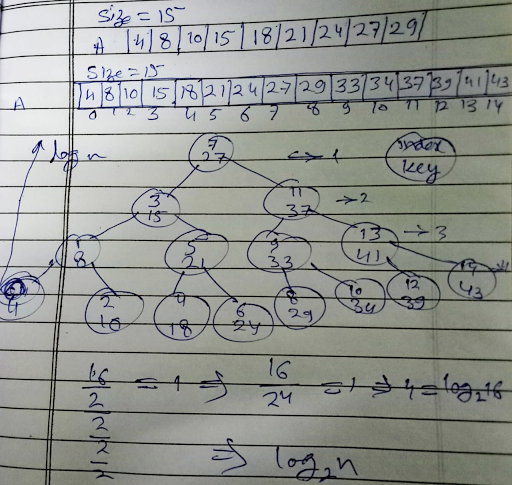 Size = 15
A |4|8|10|15|18|21|24|27|29|
Size = 15
A |4|8|10|15|18|21|24|27|29|33|34|37|39|41|43
0 1 2 3 4 5 6 7 8 9 10 11 12 13 14
log n 7 27 → 1 index key
3 15 11 37 → 2
1 8 5 21 9 33 13 41 → 3
0 4 2 10 4 18 6 24 8 29 10 34 12 39 14 43
16/2/2/2/2 = 1 ⇒ 16/24 = 1 ⇒ 4 = log₂16
⇒ log₂n